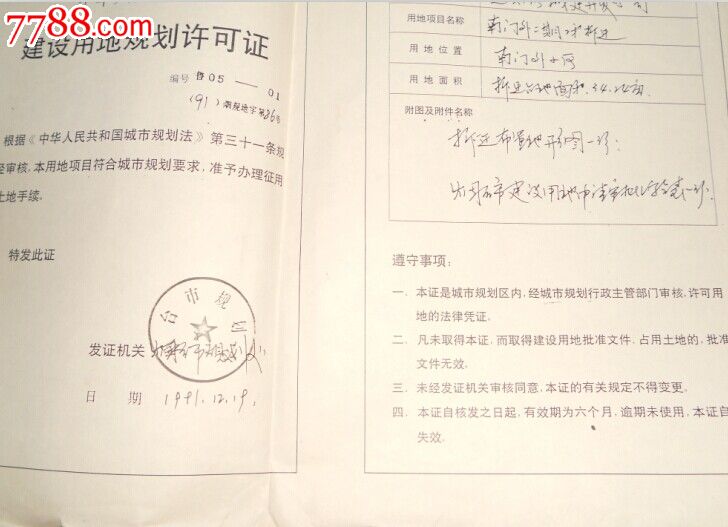 7788.com
建设用地规划许可证
编号 鲁 05 — 01
(91)烟规地字第36号
根据《中华人民共和国城市规划法》第三十一条规
经审核,本用地项目符合城市规划要求,准予办理征用
土地手续。
特发此证
台市规划
发证机关
日期 1991.12.19.
用地项目名称 南门外二期工程拆迁
用地位置 南门外大河
用地面积 34.24亩
附图及附件名称
拆迁布置地形图一份:
建设用地申请审批
遵守事项:
一. 本证是城市规划区内,经城市规划行政主管部门审核,许可用
地的法律凭证。
二. 凡未取得本证,而取得建设用地批准文件、占用土地的,批准
文件无效。
三. 未经发证机关审核同意,本证的有关规定不得变更。
四. 本证自核发之日起,有效期为六个月,逾期未使用,本证自
失效。